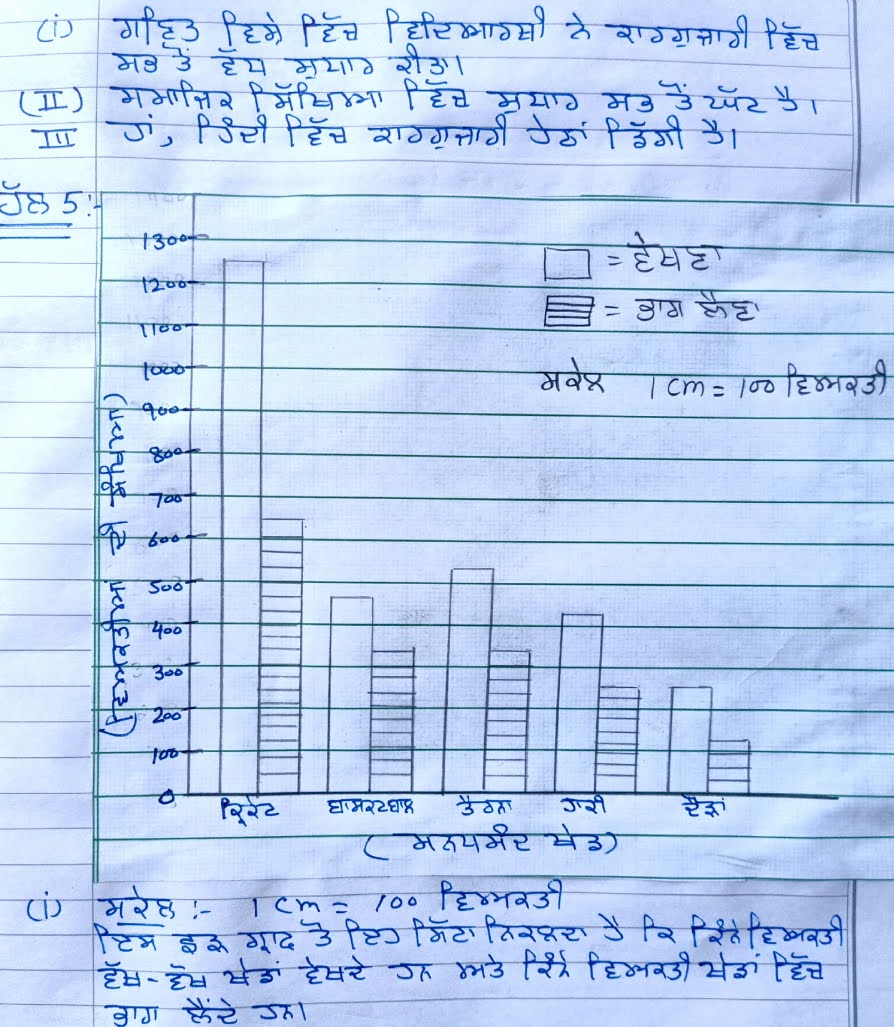 (i) ਗਣਿਤ ਵਿਸ਼ੇ ਵਿੱਚ ਵਿਦਿਆਰਥੀ ਨੇ ਕਾਰਗੁਜ਼ਾਰੀ ਵਿੱਚ
ਸਭ ਤੋਂ ਵੱਧ ਸੁਧਾਰ ਕੀਤਾ।
(II) ਸਮਾਜਿਕ ਸਿੱਖਿਆ ਵਿੱਚ ਸੁਧਾਰ ਸਭ ਤੋਂ ਘੱਟ ਹੈ।
III ਹਾਂ, ਹਿੰਦੀ ਵਿੱਚ ਕਾਰਗੁਜ਼ਾਰੀ ਹੇਠਾਂ ਡਿੱਗੀ ਹੈ।
ਹੱਲ 5:-
1300
1200
1100
1000
900
800
700
600
500
400
300
200
100
0
(ਵਿਅਕਤੀਆਂ ਦੀ ਗਿਣਤੀ)
= ਦੇਖਣਾ
= ਭਾਗ ਲੈਣਾ
ਸਕੇਲ 1 cm = 100 ਵਿਅਕਤੀ
ਕ੍ਰਿਕੇਟ ਬਾਸਕਟਬਾਲ ਤੈਰਨਾ ਹਾਕੀ ਦੌੜਾਂ
(ਮਨਪਸੰਦ ਖੇਡ)
(i) ਸਕੇਲ :- 1 cm = 100 ਵਿਅਕਤੀ
ਇਸ ਛੜ ਗ੍ਰਾਫ ਤੋਂ ਇਹ ਸਿੱਟਾ ਨਿਕਲਦਾ ਹੈ ਕਿ ਕਿੰਨੇ ਵਿਅਕਤੀ
ਵੱਖ-ਵੱਖ ਖੇਡਾਂ ਦੇਖਦੇ ਹਨ ਅਤੇ ਕਿੰਨੇ ਵਿਅਕਤੀ ਖੇਡਾਂ ਵਿੱਚ
ਭਾਗ ਲੈਂਦੇ ਹਨ।